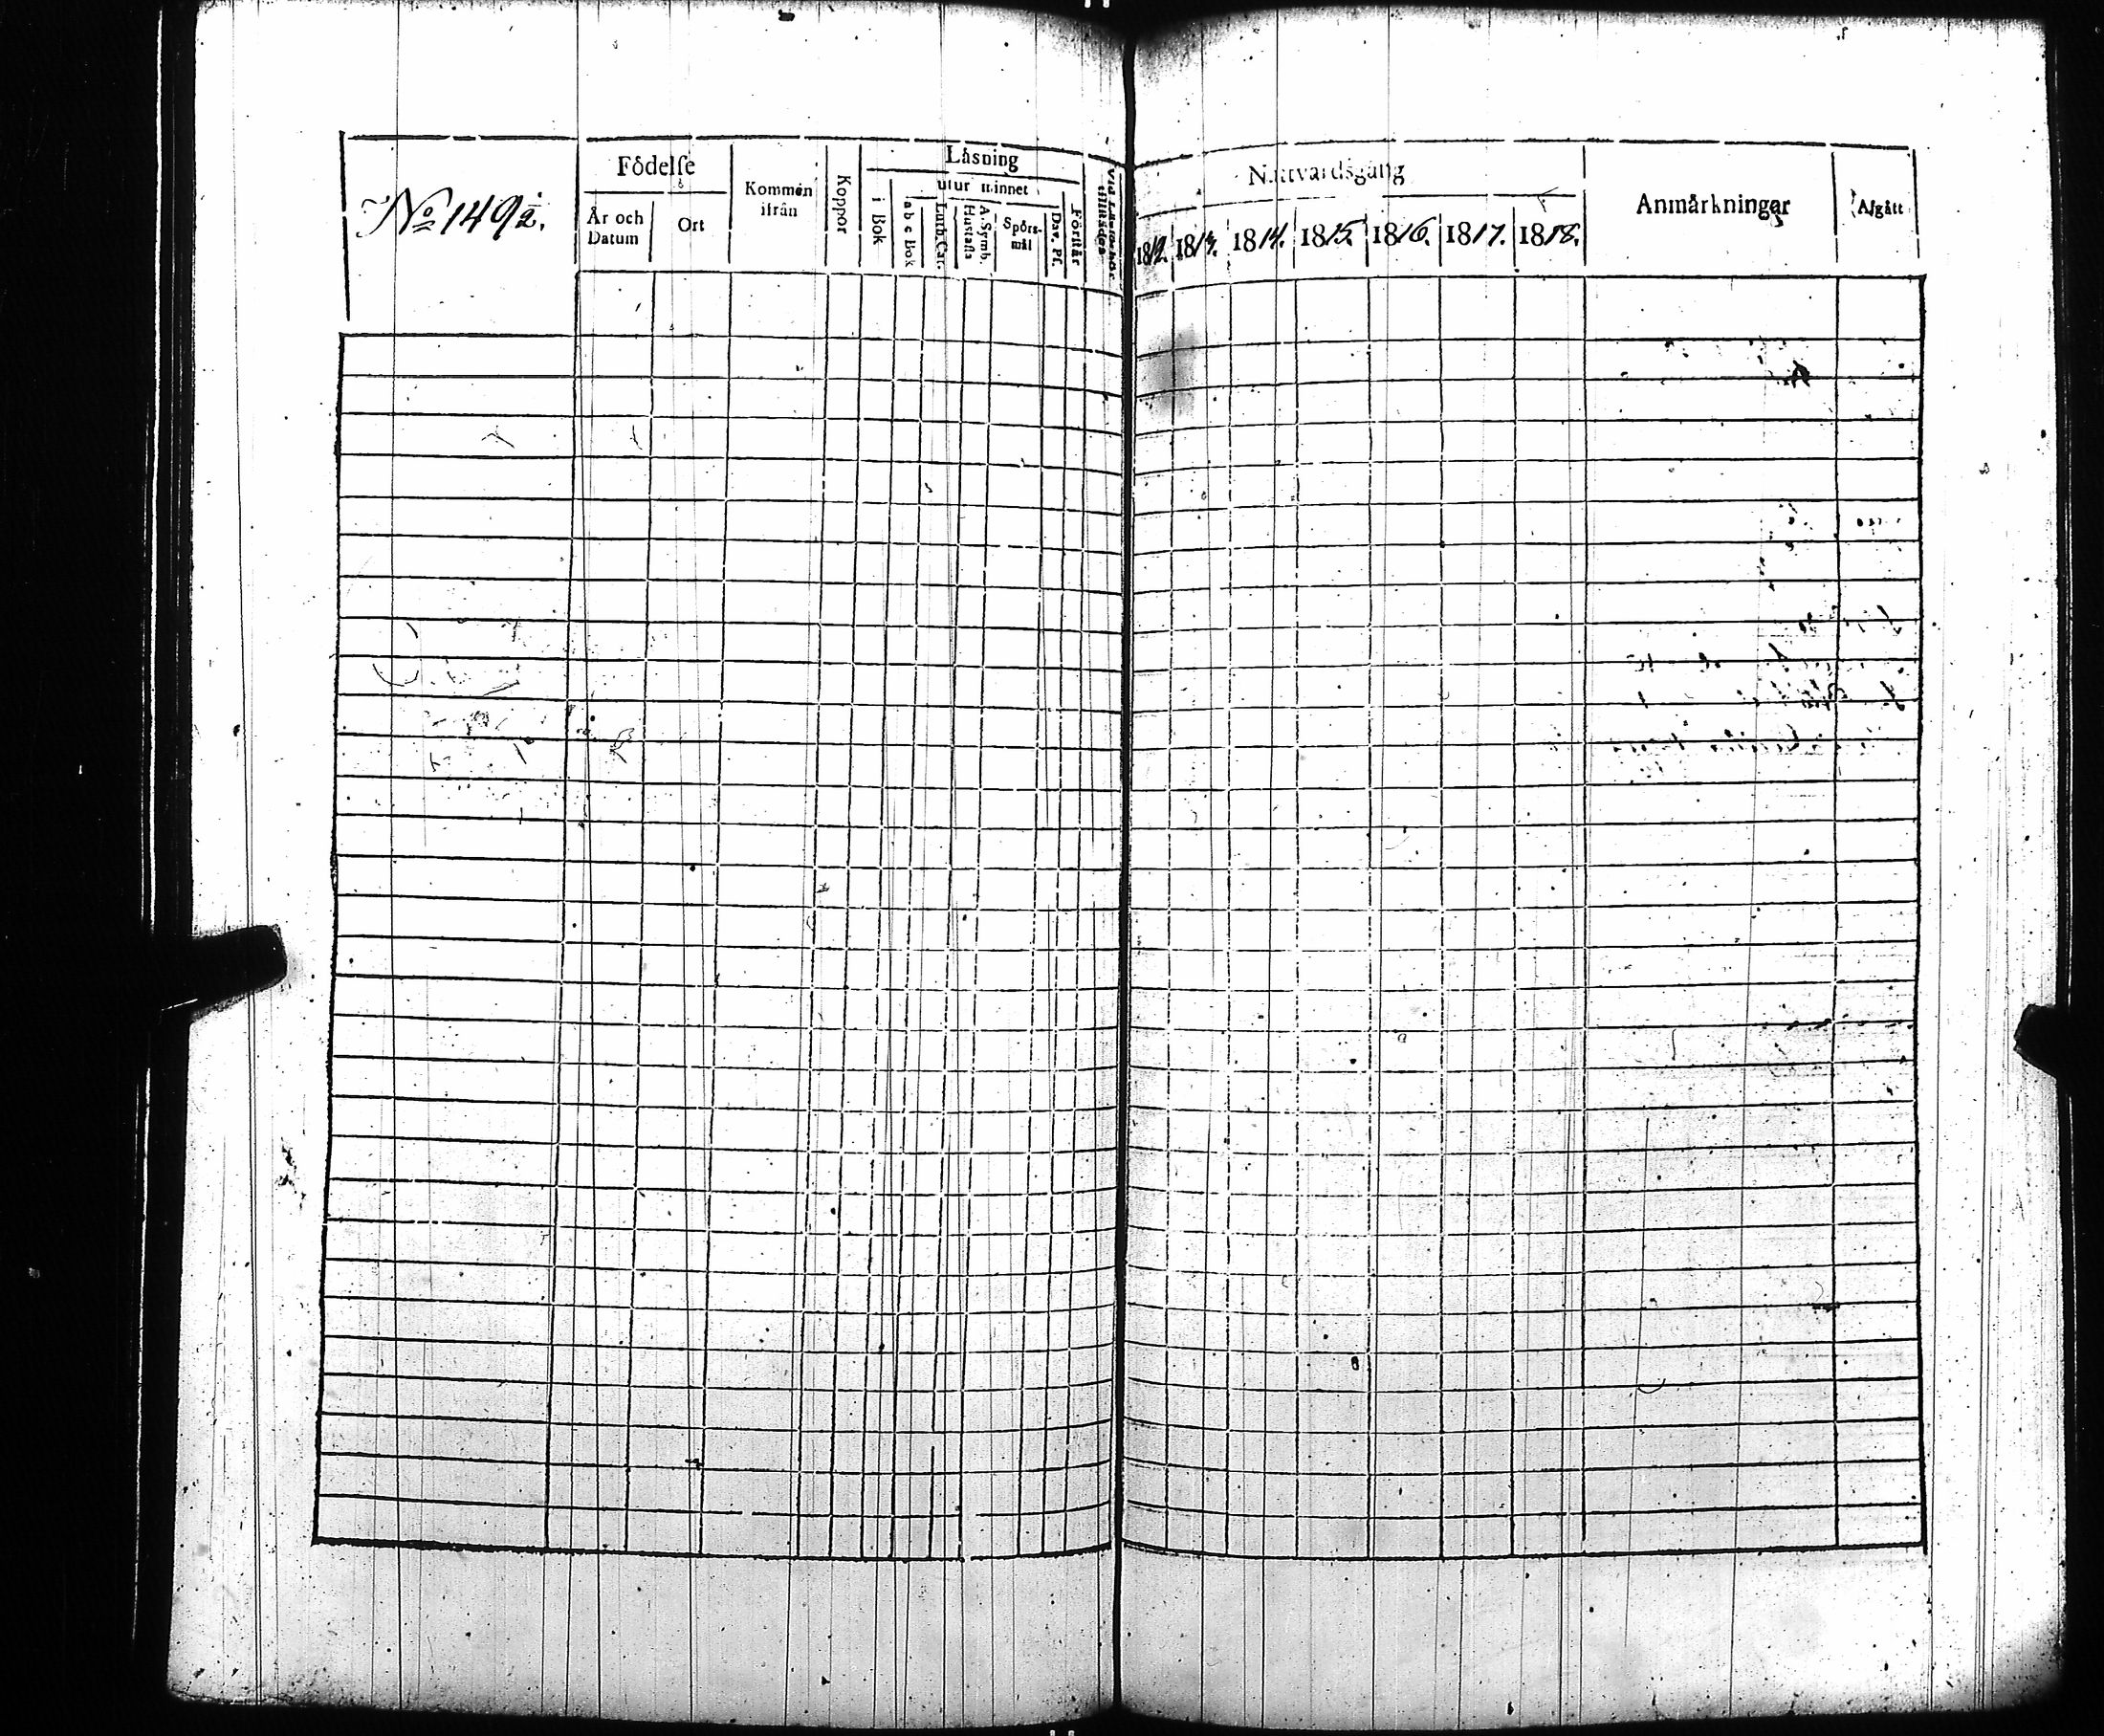 No 149½.
Födelſe
År och Datum
Ort
Kommen ifrån
Koppor
Läsning
i Bok
utur minnet
a b c Bok
Luth. Cat.
A. Symb. Hustafla
Spörs-mål
Dav. Pſ.
Förſtår
Nattvardsgång
1812. 1813. 1814. 1815. 1816. 1817. 1818.
Anmärkningar
Afgått